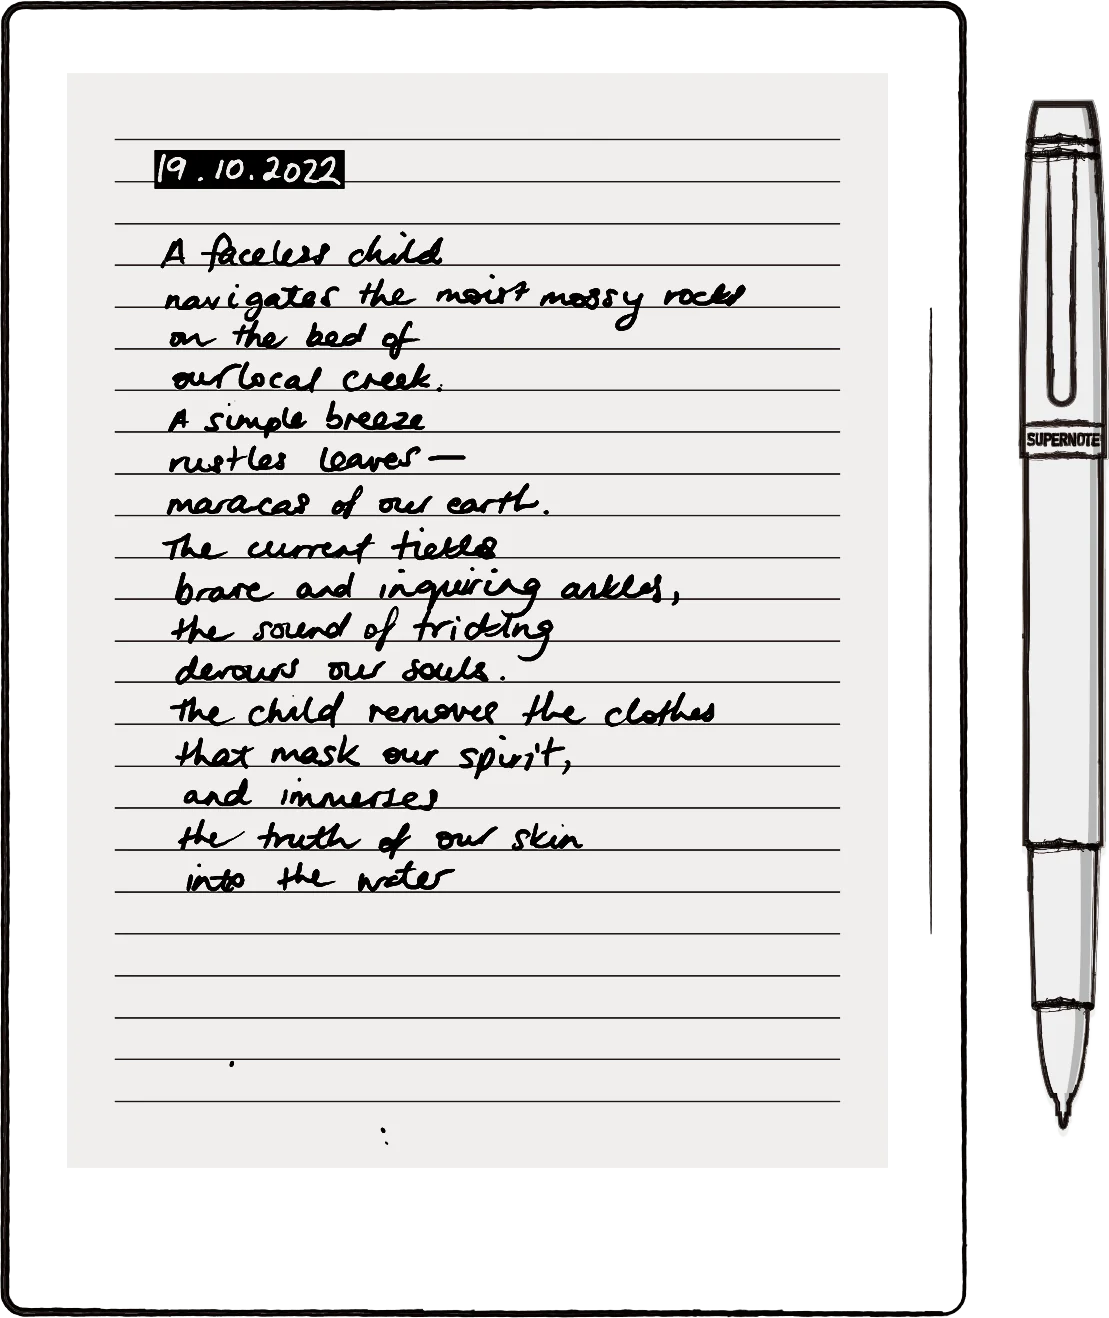 19.10.2022
A faceless child
navigates the moist mossy rocks
on the bed of
our local creek.
A simple breeze
rustles leaves —
maracas of our earth.
The current tickles
brave and inquiring ankles,
the sound of trickling
devours our souls.
The child removes the clothes
that mask our spirit,
and immerses
the truth of our skin
into the water
SUPERNOTE